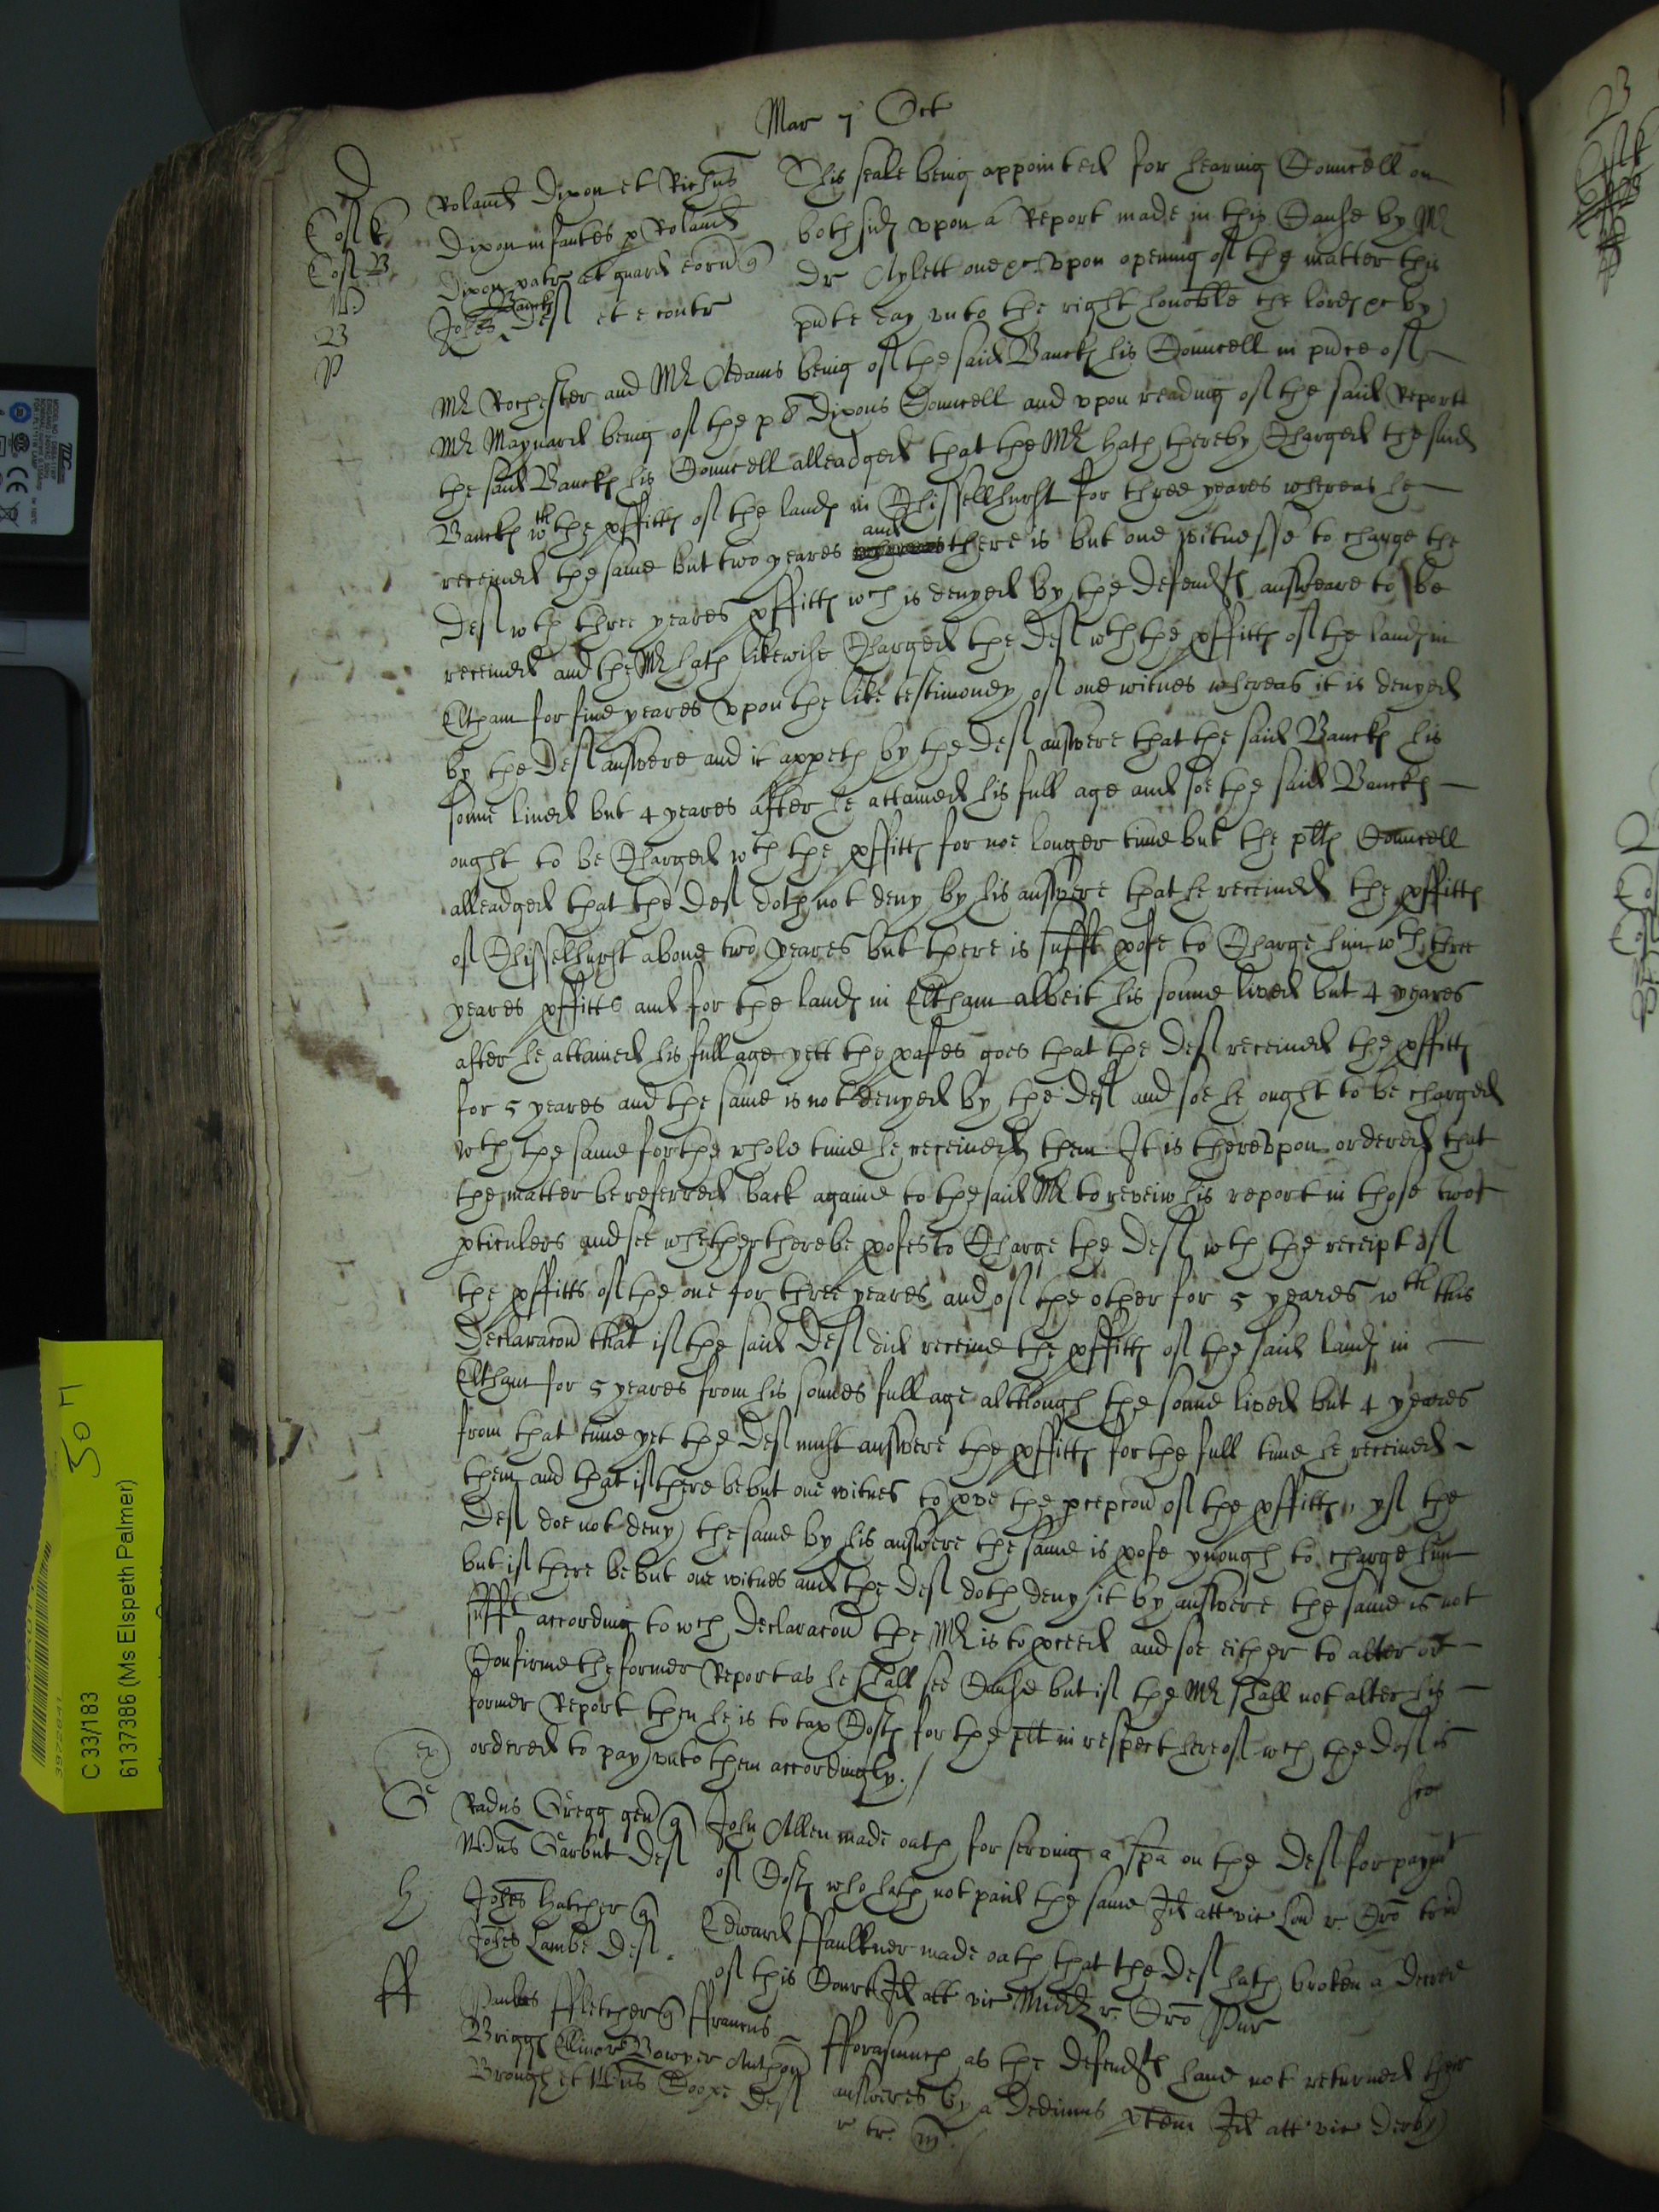 Mar 7 Oct
D
Cost
Cost B
W
B
P
Roland Dixon et Richus
Dixon infantes p Roland
Dixon patr et guard eoru q
Johes Banckes Def et e contr
This seale being appointed for hearing Councell on
both sides vpon a Report made in this Cause by Mr
Dr Aylett one &c vpon opening of the matter this
pnte day vnto the right honoble the lordes &c by
Mr Rochester and Mr Adams being of the said Banckes his Councell in pnce of
Mr Maynard being of the Dixons Councell and vpon reading of the said Reporte
the said Banckes his Councell alleadged that the Mr hath thereby Charged the said
Banckes wth the pffittes of the landes in Chissellhurst for three yeares whereas he
receiued the same but two yeares and there is but one witnesse to charge the
Def wth three yeares pffittes wch is denyed by the Defendtes answeare to be
receiued and the Mr hath likewise Charged the Def wth the pffittes of the landes in
Eltham for fiue yeares vpon the like testimoney of one witnes whereas it is denyed
by the Def answere and it appeth by the Def answere that the said Banckes his
sonne liued but 4 yeares after he attained his full age and soe the said Banckes
ought to be Charged wth the pffittes for noe longer time but the pltes Councell
alleadged that the Def doth not deny by his answere that he receiued the pffittes
of Chisselhurst aboue two yeares but there is sufft pofe to Charge him wth three
yeares pffitts and for the landes in Eltham albeit his sonne lived but 4 yeares
after he attained his full age yett the pofes goes that the Def receiued the pffittes
for 5 yeares and the same is not denyed by the Def and soe he ought to be charged
wth the same for the whole time he receiued them It is therevpon ordered that
the matter be referred back againe to the said Mr to reveiw his report in those two
pticulers and see whether there be pofes to Charge the Def wth the receipt of
the pffitts of the one for three yeares and of the other for 5 yeares wth this
Declaracon that if the said Def did receiue the pffittes of the said landes in
Eltham for 5 yeares from his sonnes full age although the sonne lived but 4 yeares
from that time yet the Def must answere the pffittes for the full time he receiued
them and that if there be but one witnes to pve the pcepcon of the pffittes yf the
Def doe not deny the same by his answere the same is pofe ynough to charge him
but if there be but one witnes and the Def doth deny it by answere the same is not
sufft according to wch Declaracon the Mr is to pceed and soe either to alter or
Confirme the former Report as he shall see Cause but if the Mr shall not alter his
former Report then he is to tax Costes for the plt in respect hereof wch the Def is
ordered to pay vnto them accordingly.
ex
G
Radus Gregg gen q
Willus Garbut Def
John Allen made oath for serving a spa on the Def for paymt
of Costes who hath not paid the same Id att vic Lond r. Cro
h
Johes Hatcher q
Johes Lambe Def.
Edward ffaulkner made oath that the Def hath broken a Decree
of this Court Id att vic Midd r. Cro Pur
ff
ffletcher q ffrancus
Briggs Ellinore Bowyer Anthon
Brough et Willus Coope Def
fforasmuch as the Defendtes haue not returned their
answeres by a Dedimus ptem Id att vic Derby
r cr. m.
C 33/183
6137386 (Ms Elspeth Palmer)
CE